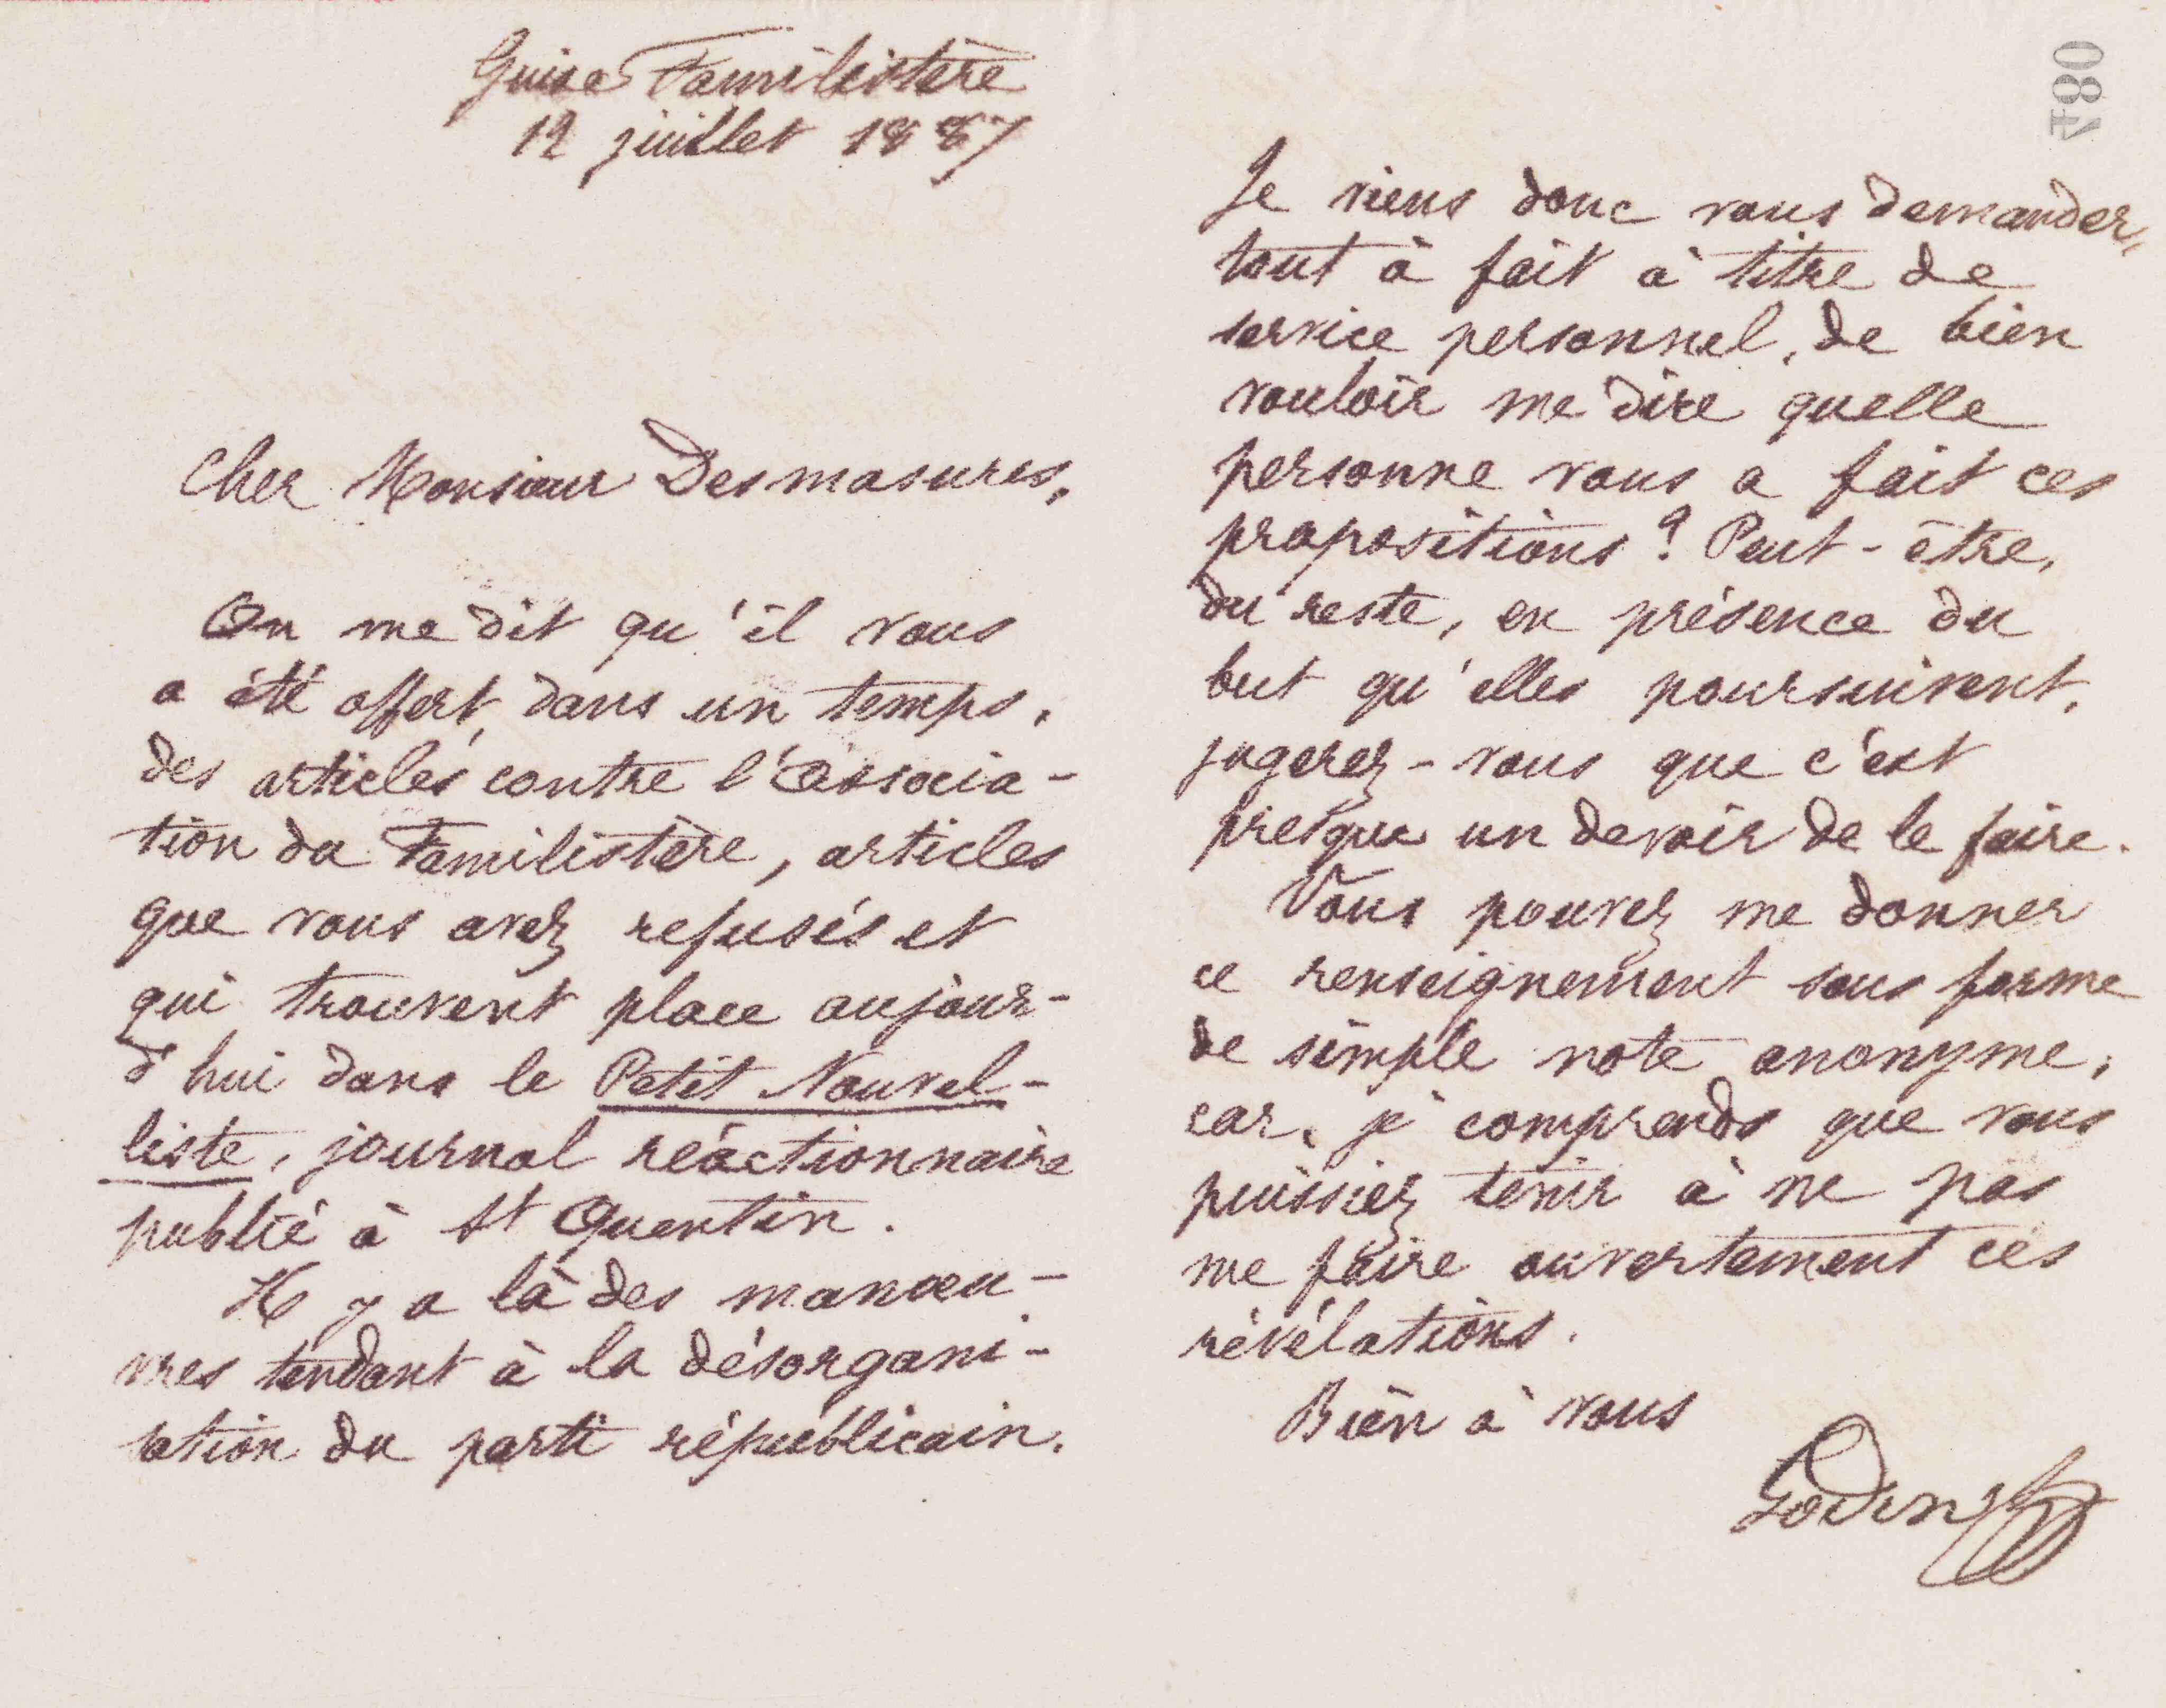 Guise Familistère
12 juillet 1887
Cher Monsieur Desmasures,
On me dit qu'il vous
a été offert, dans un temps,
des articles contre l'associa-
tion du Familistère, articles
que vous avez refusés et
qui trouvent place aujour-
d'hui dans le Petit Nouvel-
liste, journal réactionnaire
publié à St Quentin.
Il y a là des manœu-
vres tendant à la désorgani-
sation du parti républicain.
480
Je viens donc vous demander,
tout à fait à titre de
service personnel, de bien
vouloir me dire quelle
personne vous a fait ces
propositions ? Peut-être,
du reste, en présence du
but qu'elles poursuivent,
jugerez-vous que c'est
presque un devoir de le faire.
Vous pouvez me donner
ce renseignement sous forme
de simple note anonyme,
car, je comprends que vous
puissiez tenir à ne pas
me faire ouvertement ces
révélations.
Bien à vous
Godin